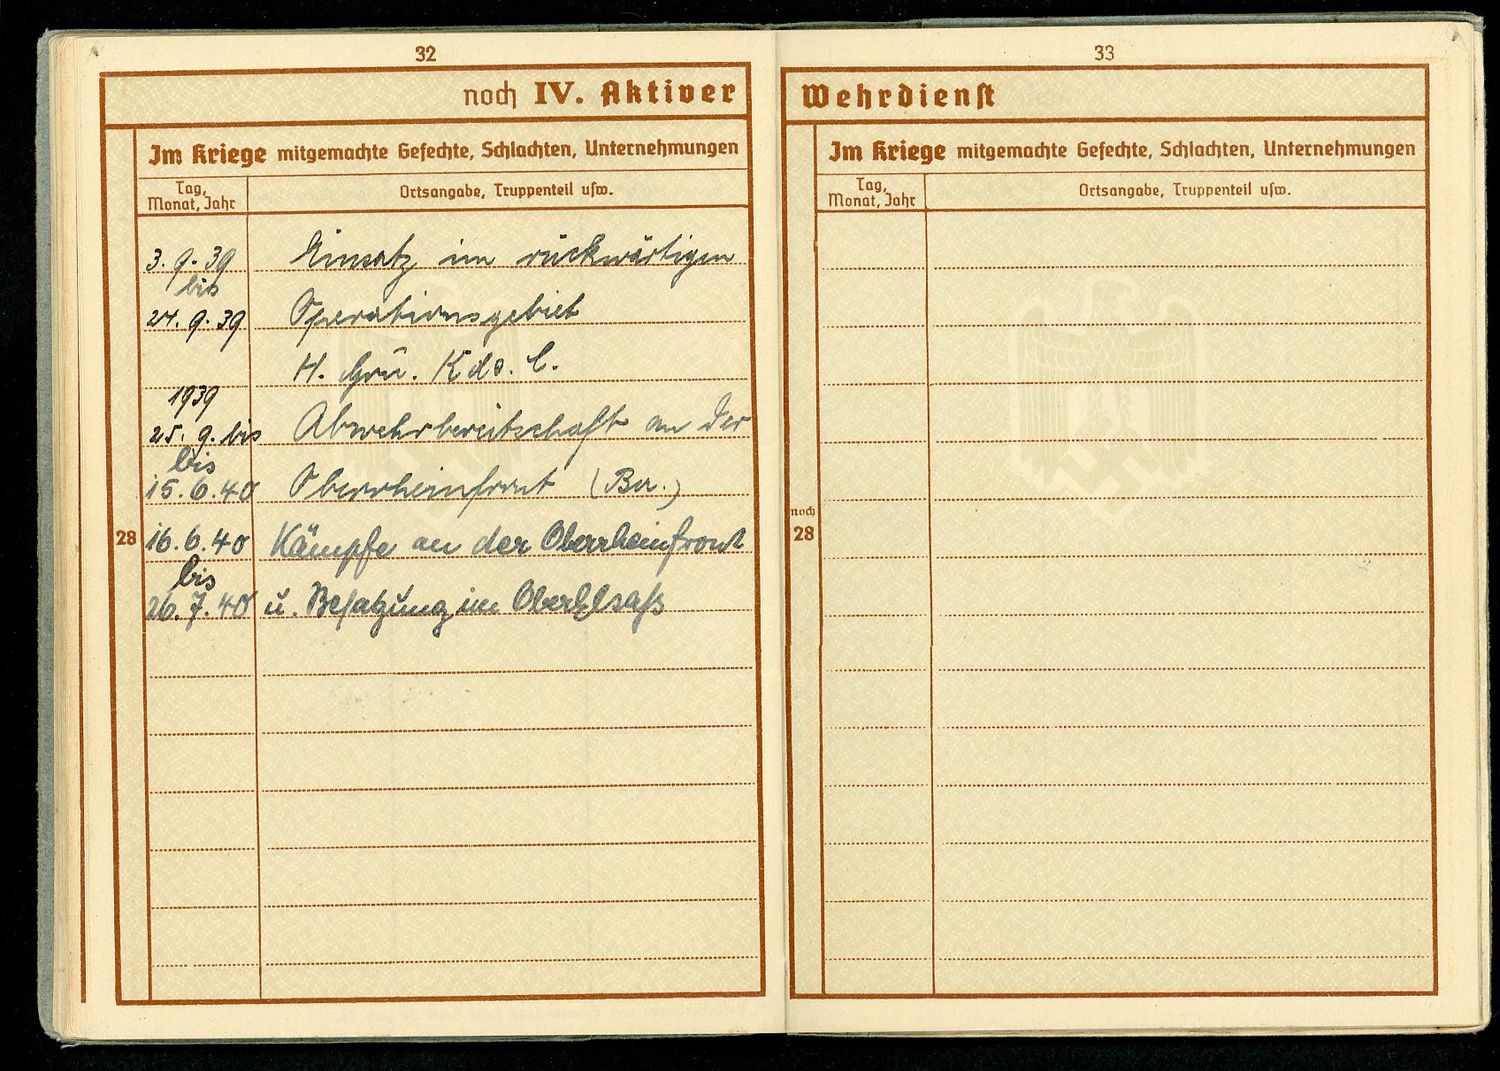 32
noch IV. Aktiver
Im Kriege mitgemachte Gefechte, Schlachten, Unternehmungen
Tag,
Monat, Jahr
Ortsangabe, Truppenteil usw.
3. 9. 39 Einsatz im rückwärtigen
bis
24. 9. 39 Operationsgebiet
H. Gru. Kdo. C.
1939
25. 9. bis Abwehrbereitschaft an der
bis
15. 6. 40 Oberrheinfront
28 16. 6. 40 Kämpfe an der Oberrheinfront
bis
26. 7. 40 u. Besatzung im OberElsaß
33
Wehrdienst
Im Kriege mitgemachte Gefechte, Schlachten, Unternehmungen
Tag,
Monat, Jahr
Ortsangabe, Truppenteil usw.
noch
28